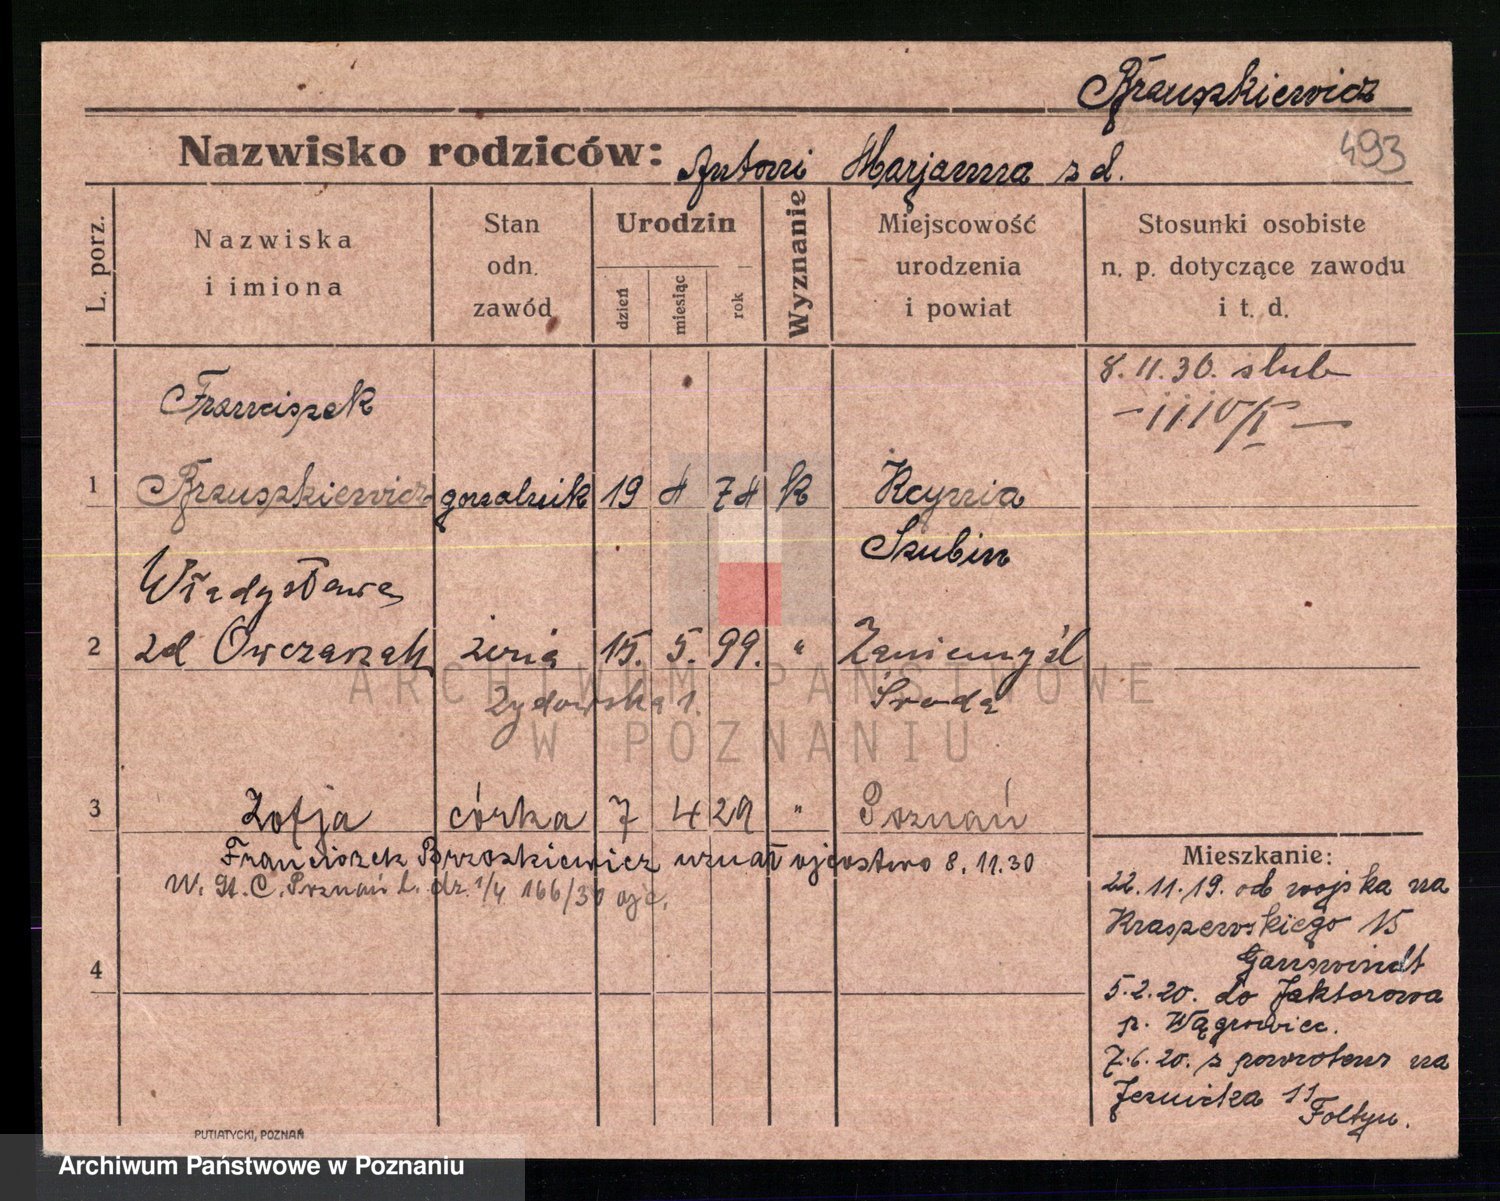 Brzuszkiewicz
493
Nazwisko rodziców: Antoni Marjanna z d.
L. porz.
Nazwiska i imiona
Stan odn. zawód
Urodzin
dzień
miesiąc
rok
Wyznanie
Miejscowość urodzenia i powiat
Stosunki osobiste n. p. dotyczące zawodu i t. d.
8. 11. 30. slub
Franciszek
1 Brzuszkiewicz gorzalnik 19 4 74 k Kcynia
Szubin
Władysława
2 zd Owczarzak żona 15. 5. 99. " Zaniemyśl
Żydowska 1. Środa
3 Zofja córka 7 4 29 " Poznań
Franciszek Brzoskiewicz uznał ojcostwo 8. 11. 30
Poznań L. dz 1/4 166/30 ojc.
4
Mieszkanie:
22. 11. 19. od wojska na
Kraszewskiego 15
Ganswindt
5. 2. 20. do Jaktorowa
p. Wągrowiec.
7. 6. 20. z powrotem na
Jezuicka 11
Foltyn.
PUTIATYCKI, POZNAŃ
ARCHIWUM PAŃSTWOWE
W POZNANIU
Archiwum Państwowe w Poznaniu